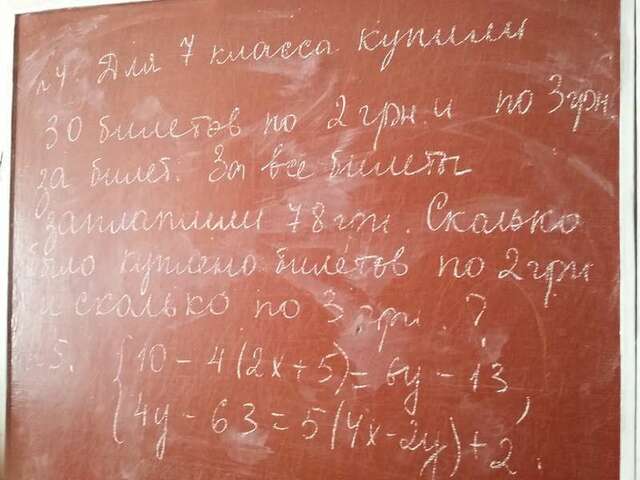 №4. Для 7 класса купили
30 билетов по 2 грн. и по 3 грн.
за билет. За все билеты
заплатили 78 грн. Сколько
было куплено билетов по 2 грн
и сколько по 3 грн. ?
№5. { 10 - 4(2x+5) = 6y - 13,
4y - 63 = 5(4x-2y)+2.